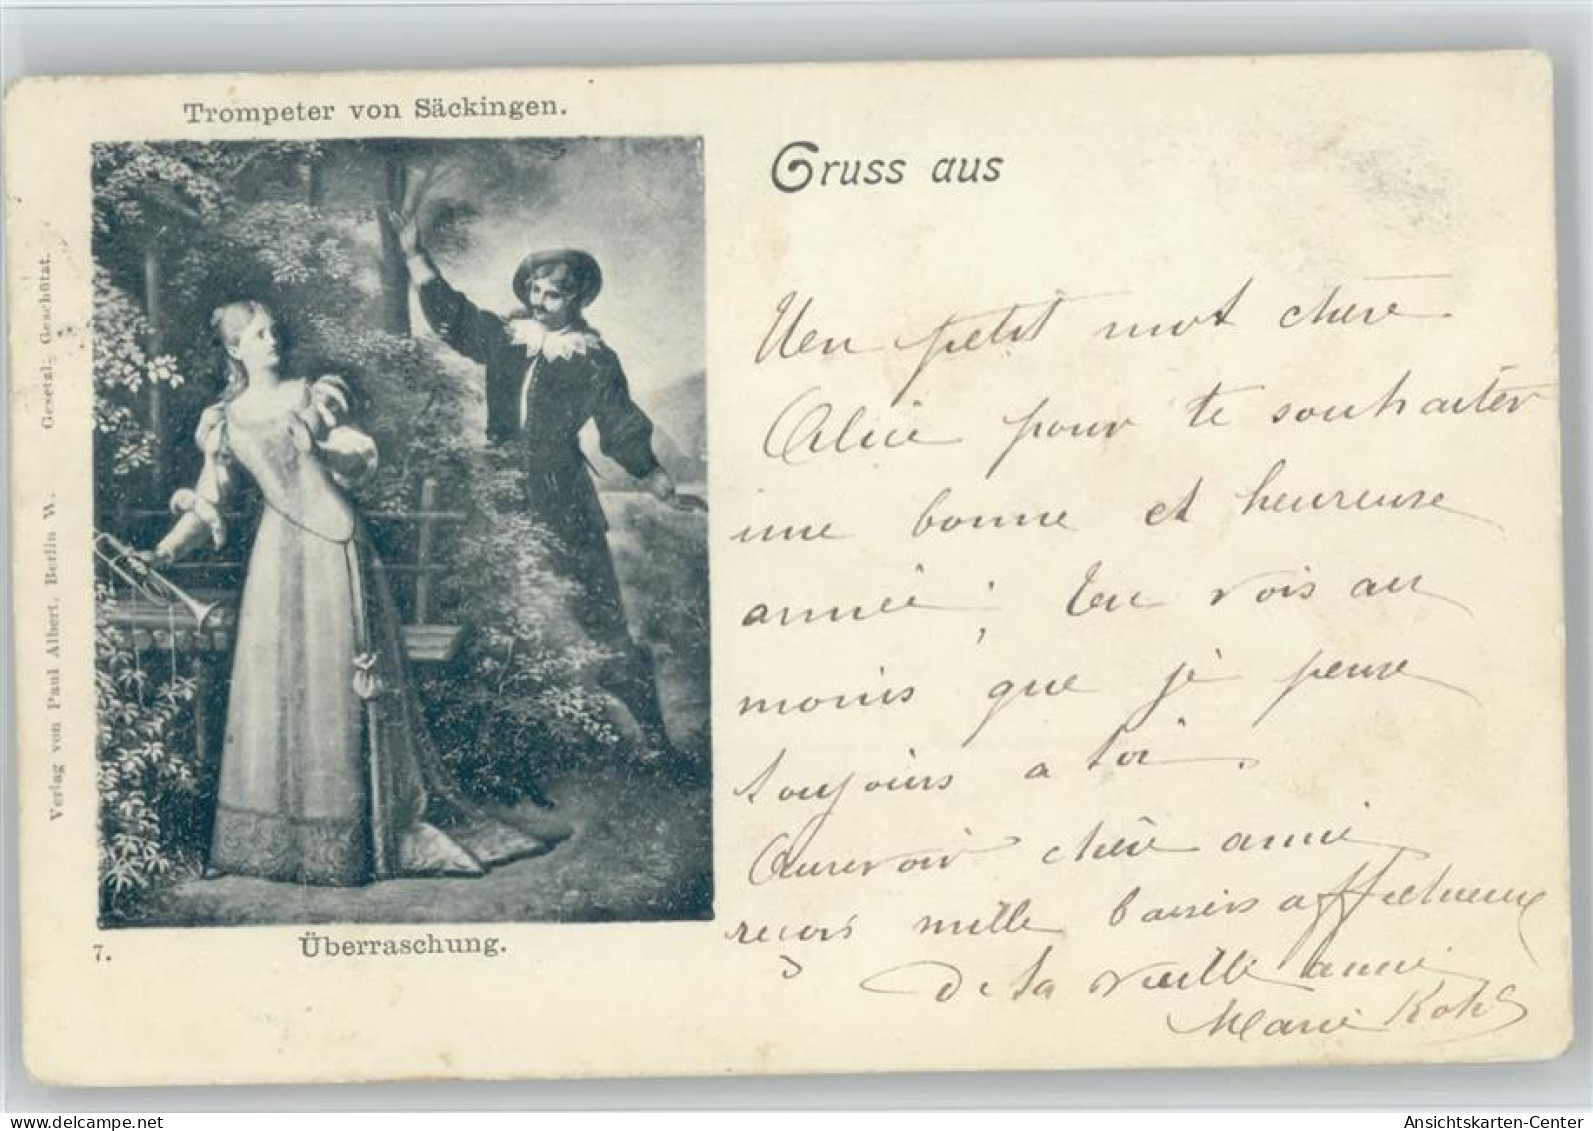 Trompeter von Säckingen.
Gruss aus
Verlag von Paul Albert, Berlin W. Gesetzl. Geschützt.
7.
Überraschung.
Un petit mot chère
Alice pour te souhaiter
une bonne et heureuse
année ; tu vois au
moins que je pense
toujours a toi.
Aurevoir chère amie
reçois mille baisers affectueux
De ta vieille amie
Marie
delcampe.net
Ansichtskarten-Center